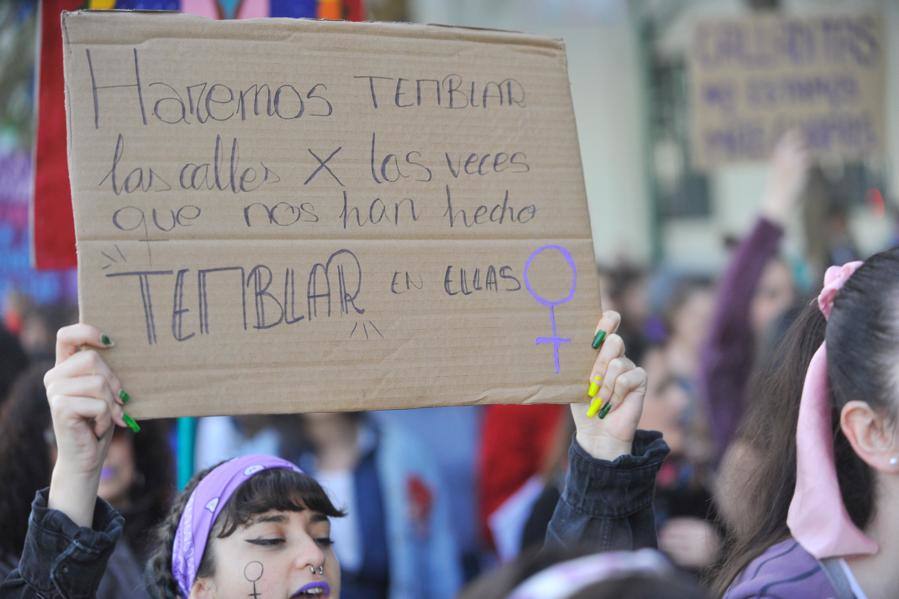 Haremos TEMBLAR
las calles X las veces
que nos han hecho
TEMBLAR EN ELLAS
CALLADITAS
NO ESTAMOS
MÁS GUAPAS